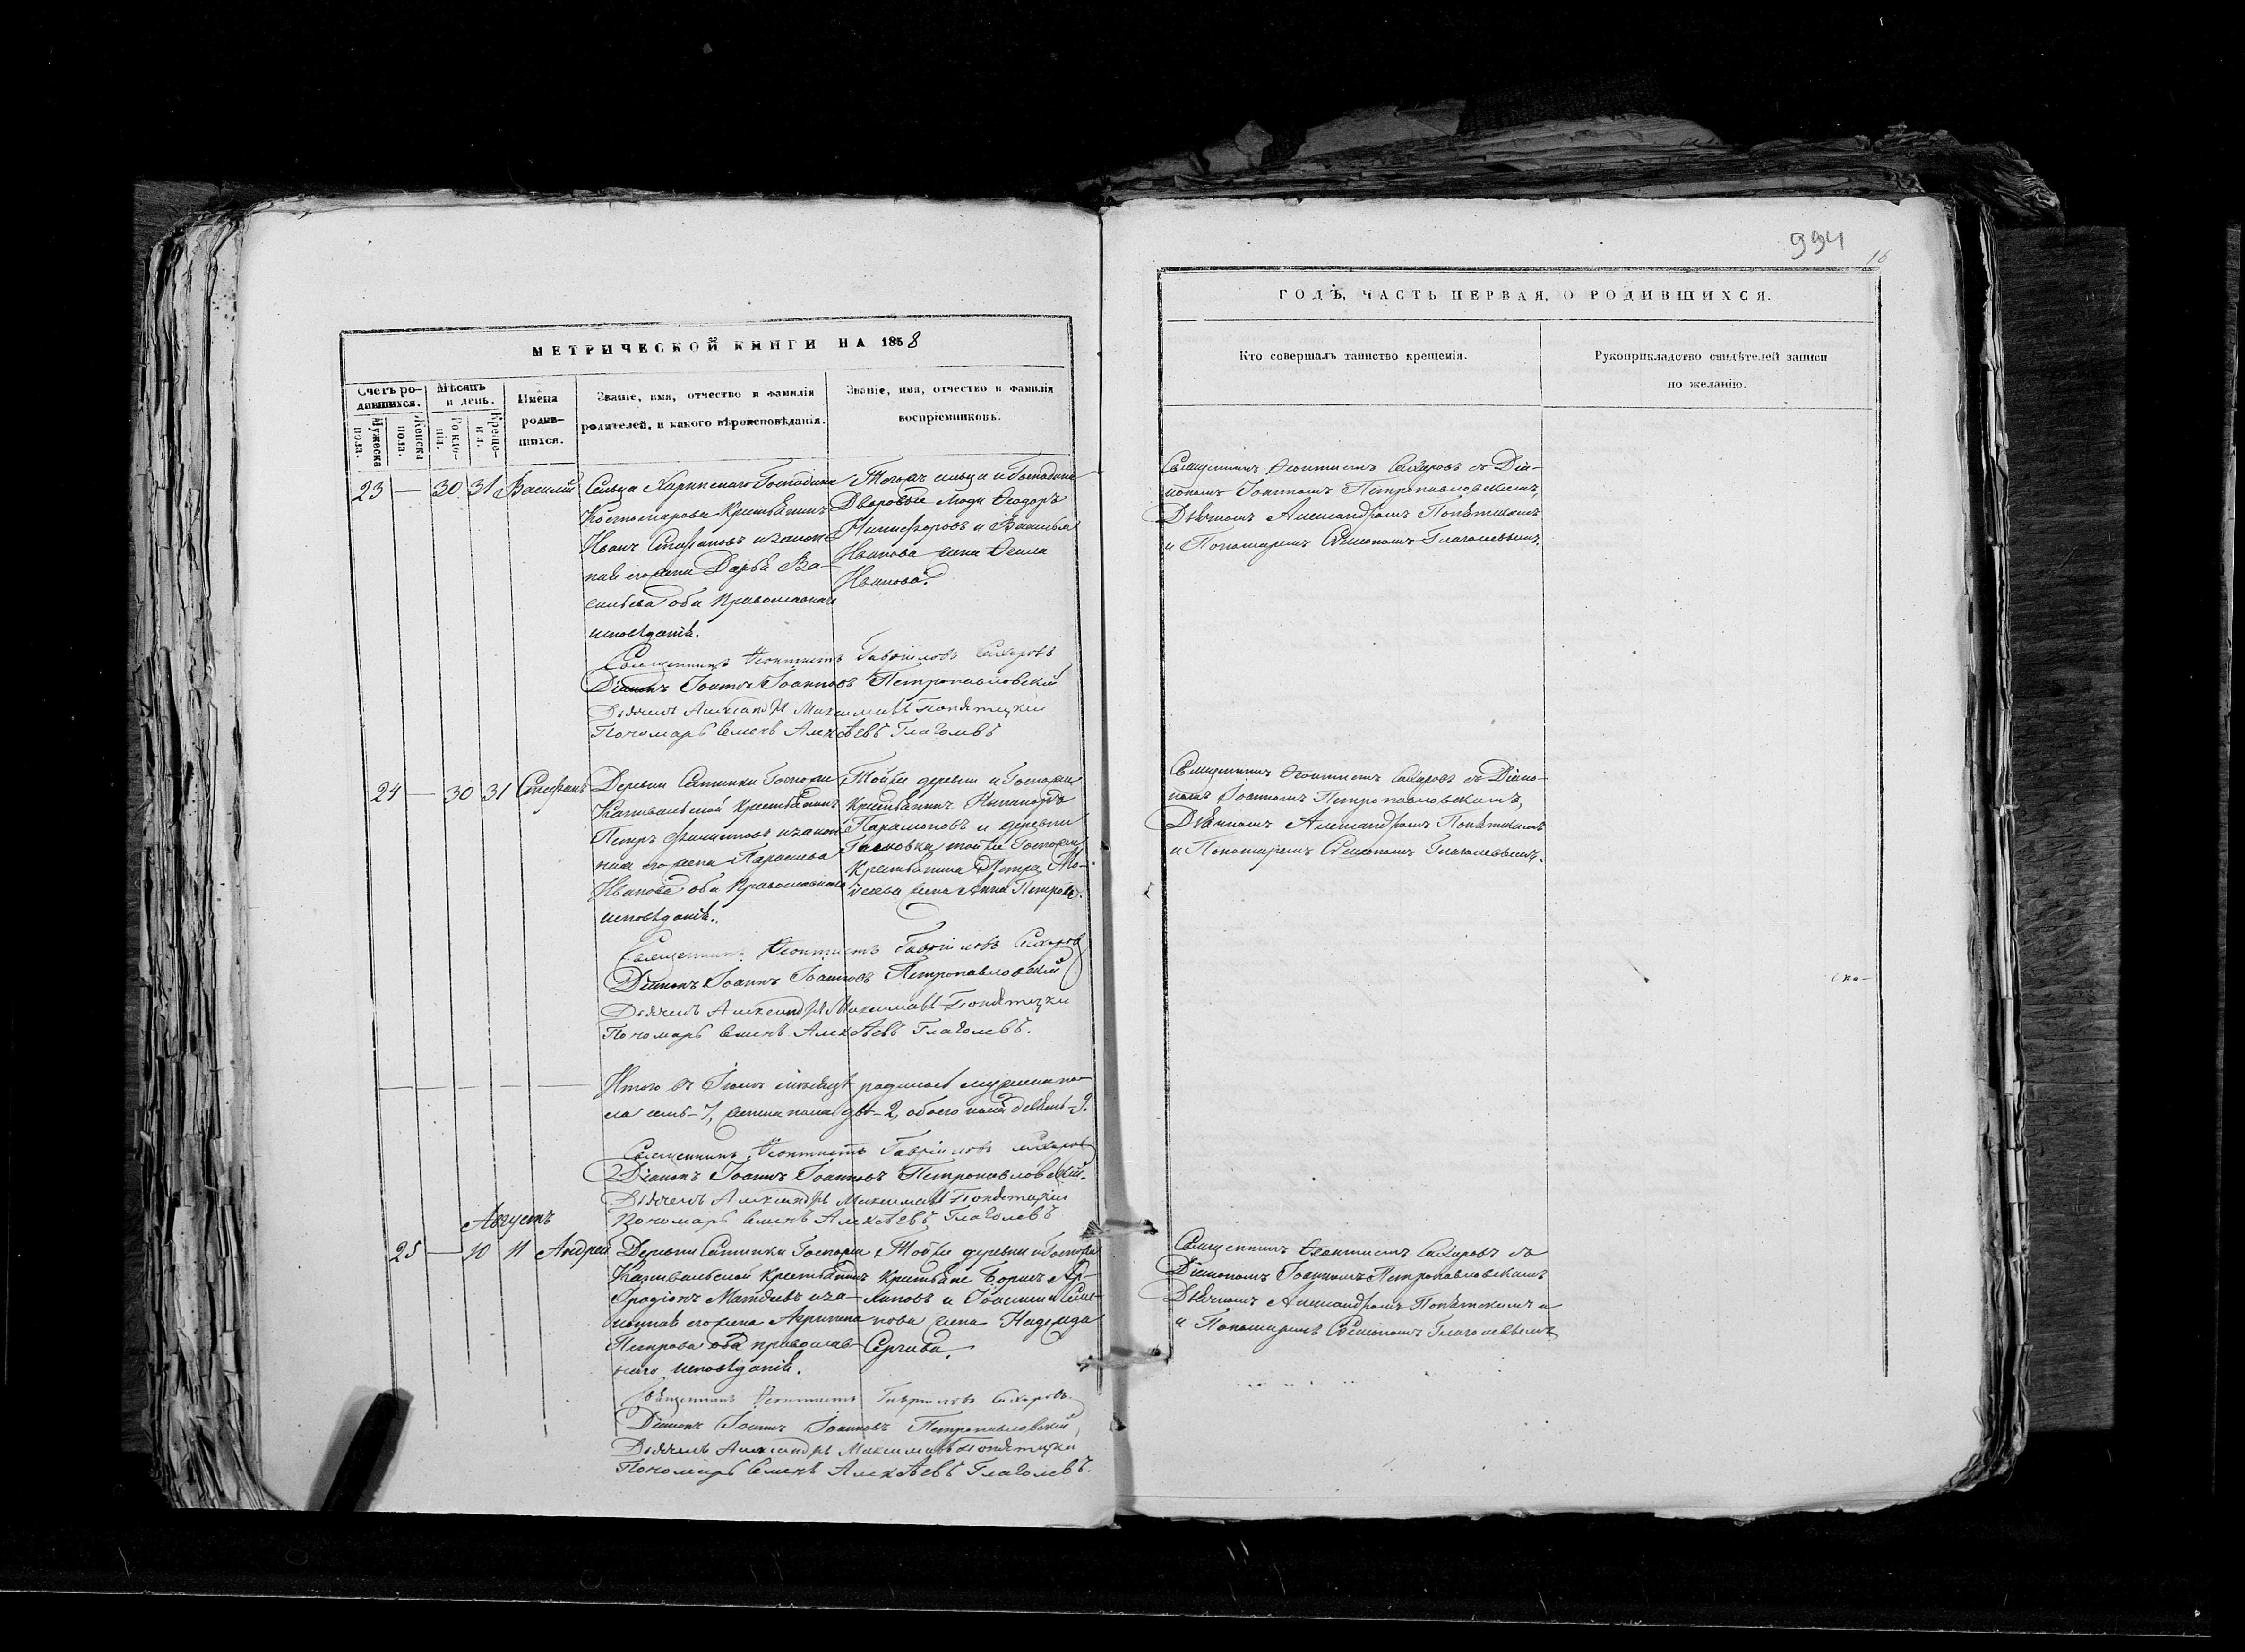 МЕТРИЧЕСКОЙ КНИГИ НА 1858
Счетъ ро-
дившихся.
Мужеска
пола.
Женска
пола.
Мѣсяцъ
и день.
Рожде-
нія.
Креще-
нія.
Имена
родив-
шихся.
Званіе, имя, отчество и фамилія
родителей, и какого вѣроисповѣданія.
Званіе, имя, отчество и фамилія
воспріемниковъ.
23 — 30 31 Василій
Сельца Господина
Костомарова Крестьянинъ
Иванъ Стефановъ и закон-
ная его жена Дарья Ва-
сильева оба Православнаго
исповѣданія.
Тогожъ сельца и Господина
Дворовые люди Ѳеодоръ
Никифоровъ и Василья
Иванова жена Ѳекла
Иванова.
Священникъ Ѳеоктистъ Гавріиловъ Сахаровъ
Діаконъ Іоаннъ Іоанновъ Петропавловскій
Дьячекъ Александръ Максимовъ
Пономарь Семенъ Алексѣевъ Глаголевъ
24 — 30 31 Стефанъ
Деревни Сатинки Госпожи
Крестьянинъ
Петръ и закон-
ная его жена Параскева
Иванова оба Православнаго
исповѣданія.
Той же деревни и Госпожи
крестьянинъ
Парамоновъ и деревни
той же Госпожи
Крестьянина Петра Мо-
исеева жена Анна Петрова.
Священникъ Ѳеоктистъ Гавріиловъ Сахаровъ
Діаконъ Іоаннъ Іоанновъ Петропавловскій
Дьячекъ Александръ Максимовъ
Пономарь Семенъ Алексѣевъ Глаголевъ.
Итого въ Іюлѣ мѣсяцѣ родилось мужеска по-
ла семь-7, женска пола двѣ-2, обоего пола девять-9.
Священникъ Ѳеоктистъ Гавріиловъ Сахаровъ
Діаконъ Іоаннъ Іоанновъ Петропавловскій.
Дьячекъ Александръ Максимовъ
Пономарь Семенъ Алексѣевъ Глаголевъ
Августъ
25 — 10 11 Андрей
Деревни Сатинки Госпожи
Крестьянинъ
Иродіонъ Матвѣевъ и за-
конная его жена Агрипина
Петрова оба православ-
наго исповѣданія.
Той же деревни и Госпожи
крестьяне Борисъ Ар-
хиповъ и Іоакима Семе-
нова жена Надежда
Сергѣева.
Священникъ Ѳеоктистъ Гавріиловъ Сахаровъ
Діаконъ Іоаннъ Іоанновъ Петропавловскій
Дьячекъ Александръ Максимовъ
Пономарь Семенъ Алексѣевъ Глаголевъ.
994
16
ГОДЪ, ЧАСТЬ ПЕРВАЯ, О РОДИВШИХСЯ.
Кто совершалъ таинство крещенія.
Рукоприкладство свидѣтелей записи
по желанію.
Священникъ Ѳеоктистъ Сахаровъ съ Діа-
кономъ Іоанномъ Петропавловскимъ,
Дьячкомъ Александромъ
и Пономаремъ Симеономъ Глаголевымъ.
Священникъ Ѳеоктистъ Сахаровъ съ Діако-
номъ Іоанномъ Петропавловскимъ,
Дьячкомъ Александромъ
и Пономаремъ Симеономъ Глаголевымъ.
Священникъ Ѳеоктистъ Сахаровъ съ
Діакономъ Іоанномъ Петропавловскимъ
Дьячкомъ Александромъ и
и Пономаремъ Симеономъ Глаголевымъ